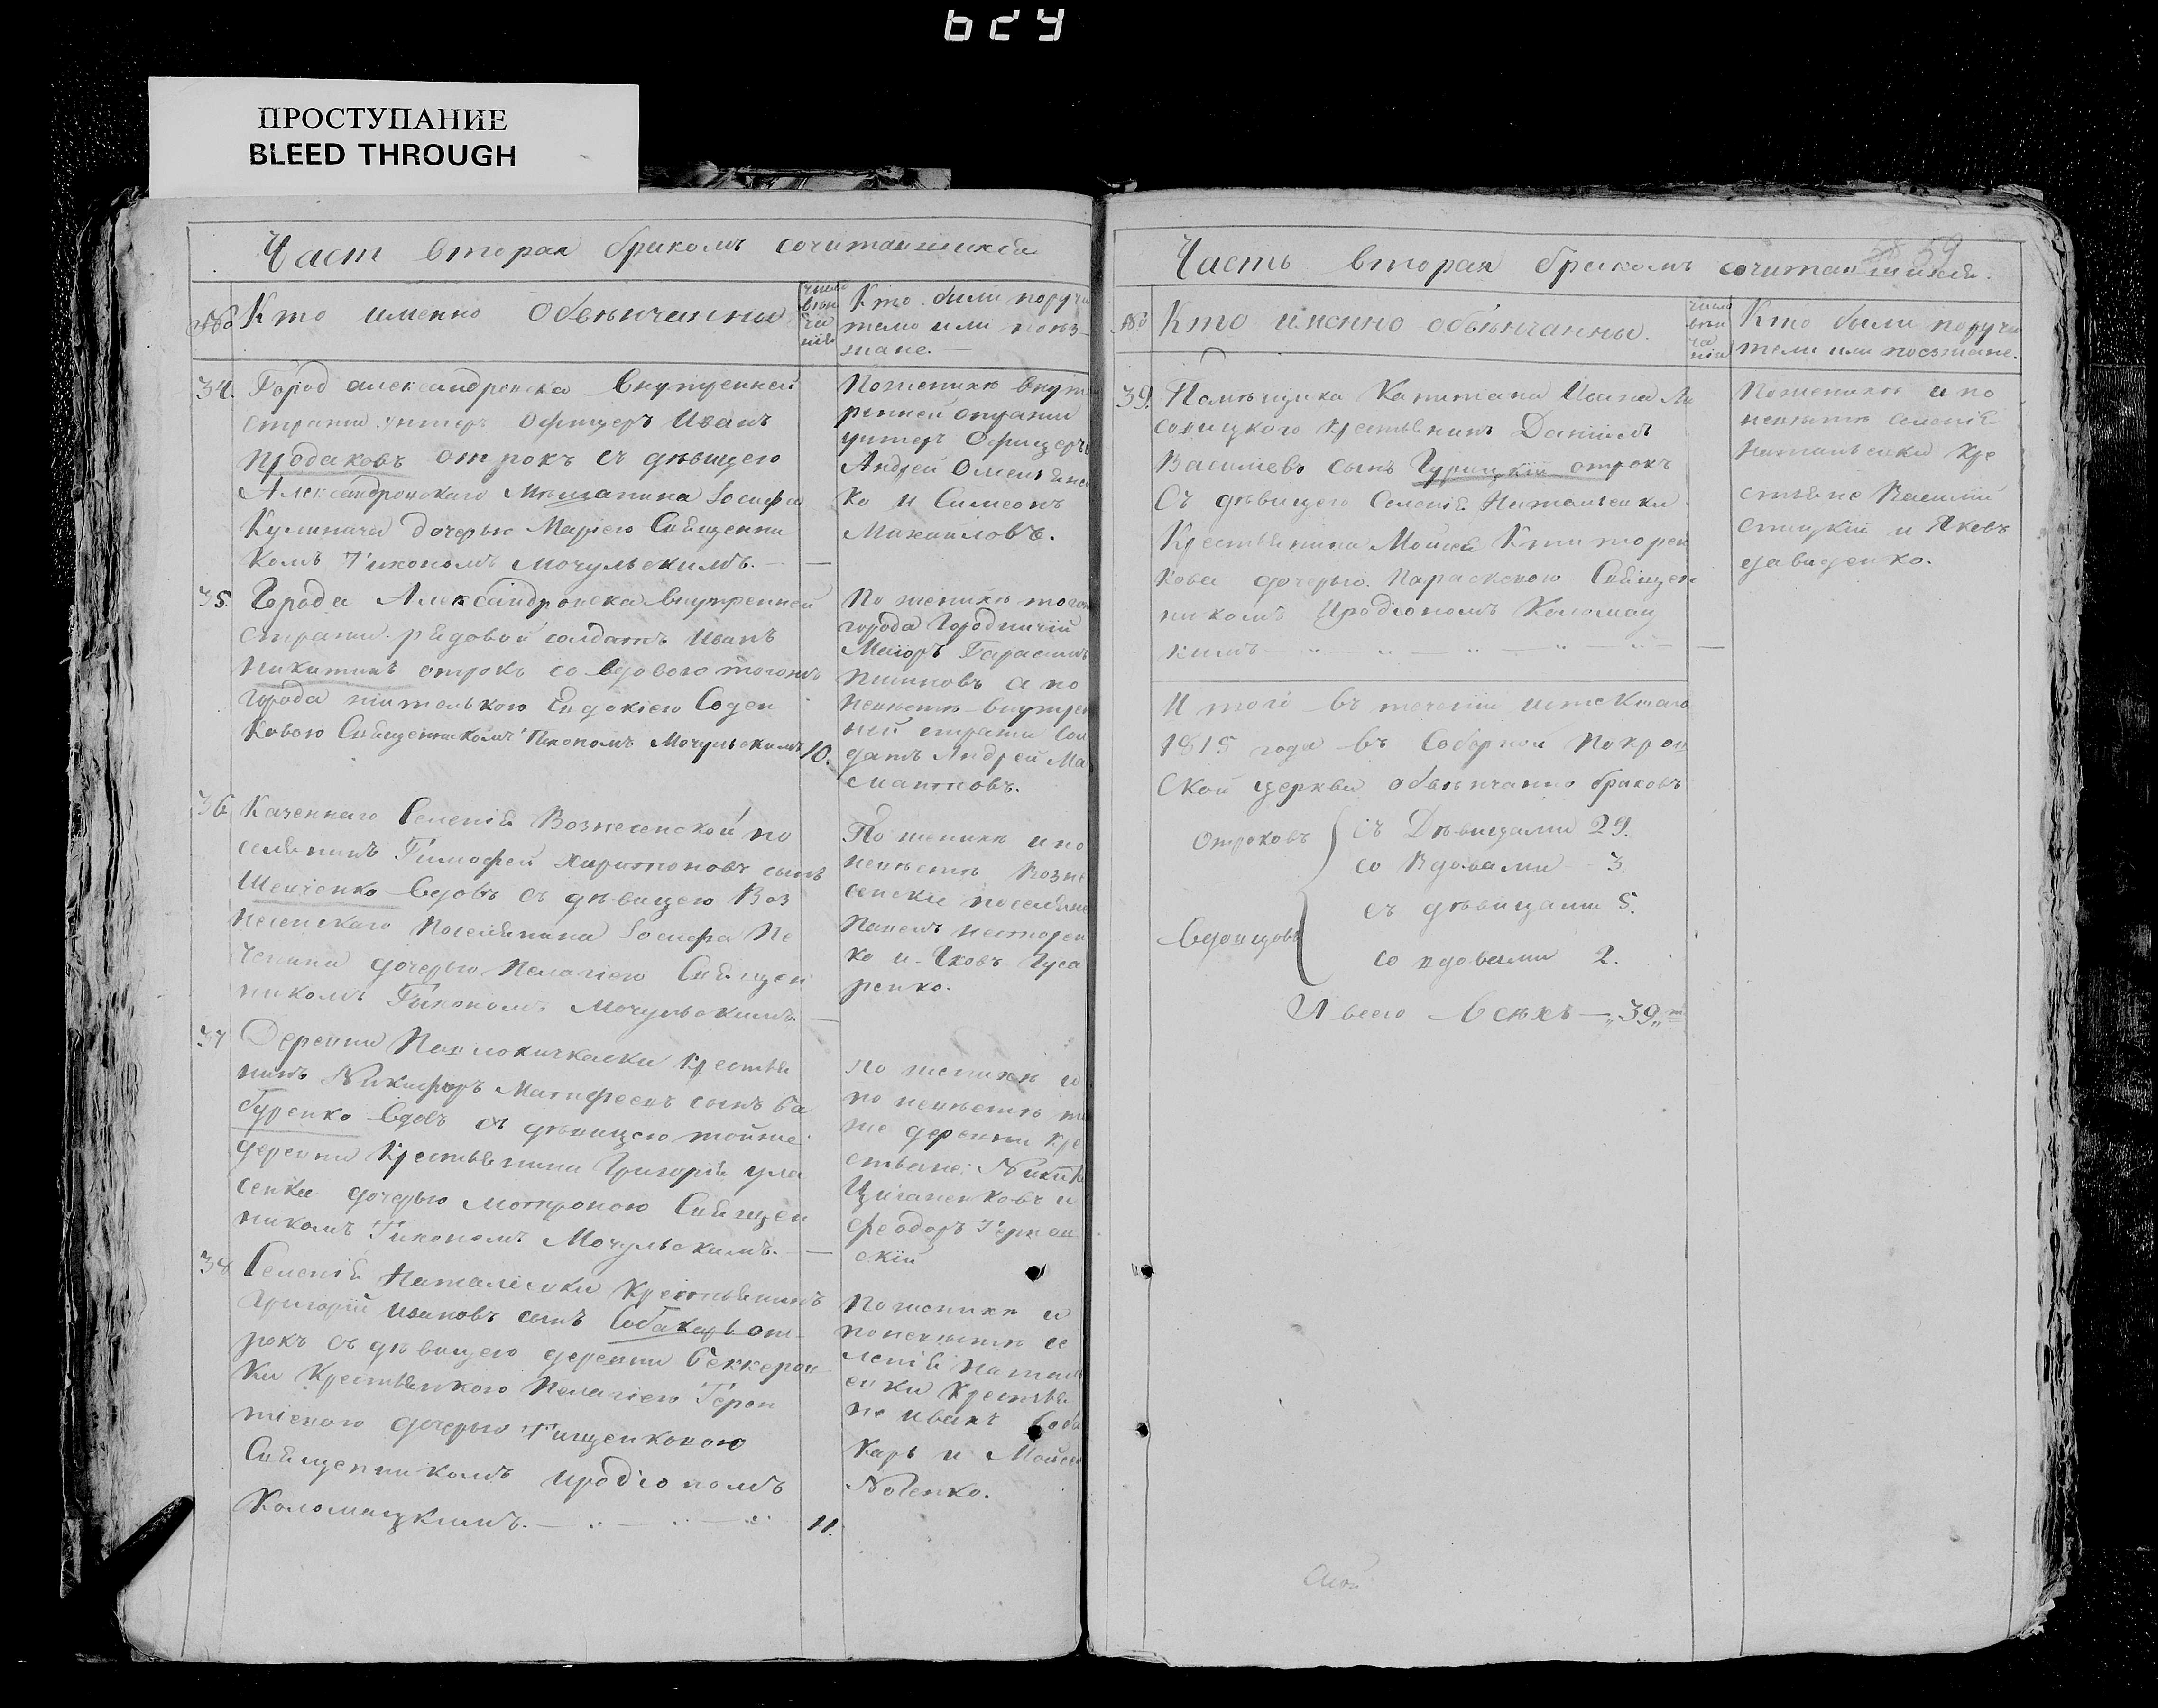 629
ПРОСТУПАНИЕ
BLEED THROUGH
Част вторая бракомъ сочитавшихся
Кто именно Обвѣнчанны
число
вѣн
ча
нія
Кто были поручи
тели или поѣз
жане.
34.
Город александровска Внутренней
стражи унтеръ Офицеръ Иванъ
отрокъ съ дѣвицею
Александровскаго Мѣщанина Іосифа
Кулинича дочерью Маріею Священни
комъ Тихономъ Мочульскимъ. —
Поженихѣ внут
ренней стражи
унтеръ Офицеръ
Андрей Омельянен
ко и Симеонъ
Михаиловъ.
35.
Города Александровска Внутренней
стражи рядовой солдатъ Иванъ
Никитинъ отрокъ со вдовою тогожъ
города жителькою Евдокіею
Священникомъ Тихономъ Мочульскимъ
10.
По женихѣ тогожъ
города Городничій
Маіоръ Гарасимъ
а по
невѣстѣ внутрен
ней стражи Сол
датъ Андрей Ма
36
Казеннаго Селенія Вознесенской по
селянинъ Тимофей Харитоновъ сынъ
Шевченко Вдовъ съ дѣвицею Воз
несенскаго Поселянина Іосифа Пе
дочерью Пелагіею Священ
никомъ Тихономъ Мочульскимъ. —
По женихѣ и по
невѣстѣ Возне
сенскіе поселяне
Павелъ Несторен
ко и Яковъ Гуса
ренко.
37
Деревни Павлокичкаски Крестья
нинъ Никифоръ Матфеевъ сынъ Ба
буренко Вдовъ съ дѣвицею тойже
деревни Крестьянина Григорія Ула
сенка дочерью Мотроною Священ
никомъ Тихономъ Мочульскимъ. —
по женихѣ и
по невѣстѣ той
же деревни Кре
стьяне Никита
Циганенковъ и
Феодоръ Тернов
скій
38
Селенія Наталіевки Крестьянинъ
Григорій Ивановъ сынъ Собакарь от
рокъ съ дѣвицею деревни Беккеров
ки Крестьянкою Пелагіею Герон
тіевою дочерью Тищенковою
Священникомъ Иродіономъ
Коломацкимъ. —
11.
По женихѣ и
поневѣстѣ се
ленія Наталь
евки Крестья
не Иванъ Соба
карь и Моисей
Часть вторая бракомъ сочитавшихся.
59
Кто именно обвѣнчанны.
число
вѣн
ча
нія
Кто были поручи
тели или поезжане.
39.
Помѣщика Капитана Ивана Ли
совицкого Крестьянинъ Даніилъ
Василіевъ сынъ Гурицкій отрокъ
Съ дѣвицею Селенія Натальевки
Крестьянина Моисея Ктиторен
кова дочерью Параскевою Священ
никомъ Иродіономъ Коломац
кимъ — „ — „ — „ — „ —
Поженихѣ и по
невѣстѣ селенія
Натальевки Кре
стьяне Василій
и Яковъ
давиденко.
Итого въ теченіи истекшаго
1815 года въ Соборной Покров
Ской церкви обвѣнчанно браковъ
Отроковъ
съ Дѣвицами 29.
со Вдовами 3.
Вдовцовъ
съ дѣвицами 5.
со вдовами 2.
И всего всѣхъ — „39„